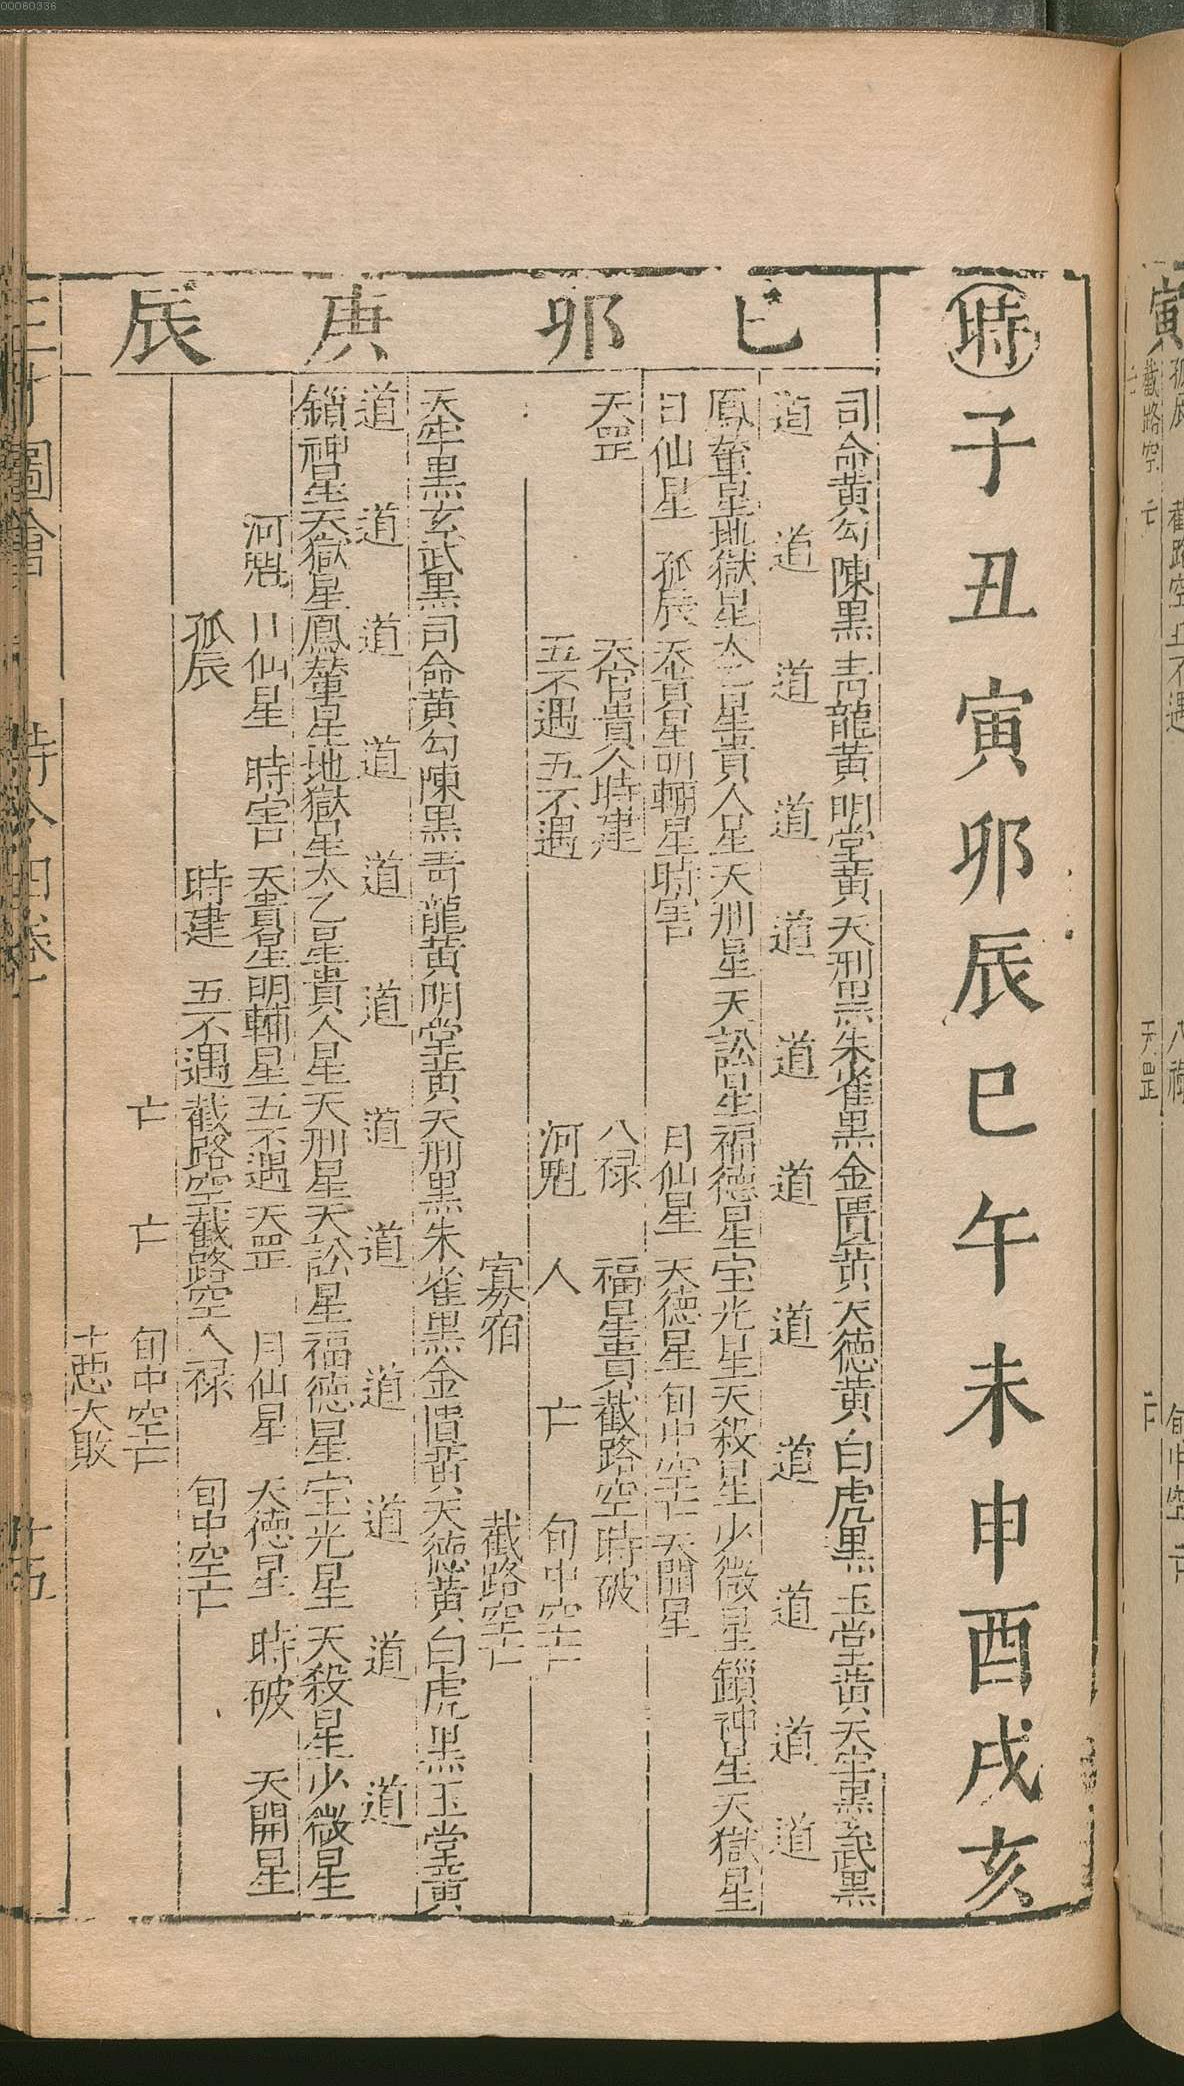 00080336
時子丑寅卯辰巳午未申酉戌亥
己卯
司命黃勾陳黑青龍黃明堂黃天刑黑朱雀黑金匱黃天德黃白虎黑玉堂黃天牢黑玄武黑
道道道道道道道道道道道道
鳳輦星地獄星太乙星貴人星天刑星天訟星福德星宝光星天殺星少微星鎖神星天獄星
日仙星 孤辰 天貴星明輔星時害 月仙星 天德星 旬中空亡 天開星
天罡 天官貴人時建 八禄 福星貴截路空時破
五不遇 五不遇 河魁 人 亡 旬中空亡
寡宿 截路空亡
庚辰
天牢黑玄武黑司命黃勾陳黑青龍黃明堂黃天刑黑朱雀黑金匱黃天德黃白虎黑玉堂黃
道道道道道道道道道道道道
鎖神星天獄星鳳輦星地獄星太乙星貴人星天刑星天訟星福德星宝光星天殺星少微星
河魁 日仙星 時害 天貴星明輔星五不遇 天罡 月仙星 天德星 時破 天開星
孤辰 時建 五不遇截路空截路空八禄 旬中空亡
亡 亡 旬中空亡
十惡大敗
圖會 時令四卷
寅
孤辰 截路空 五不遇 八禄 旬中空亡
截路空 亡 天罡 亡
亡